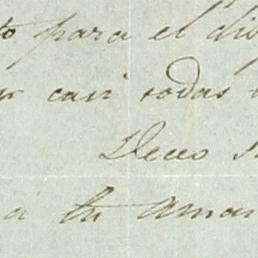 to para el di
r casi todas
Deseo
a tu aman